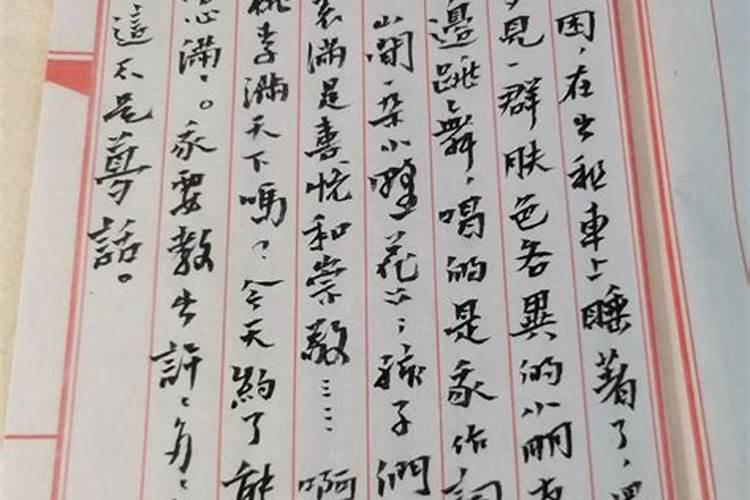 困，在出租車上睡着了，
見一群膚色各異的小朋友
邊跳舞，唱的是我作詞
山間一朵小野花》；孩子們
裏滿是喜悅和崇敬……啊
桃李滿天下嗎？今天約了
心滿滿。我要教出許許多多
這不是夢話。